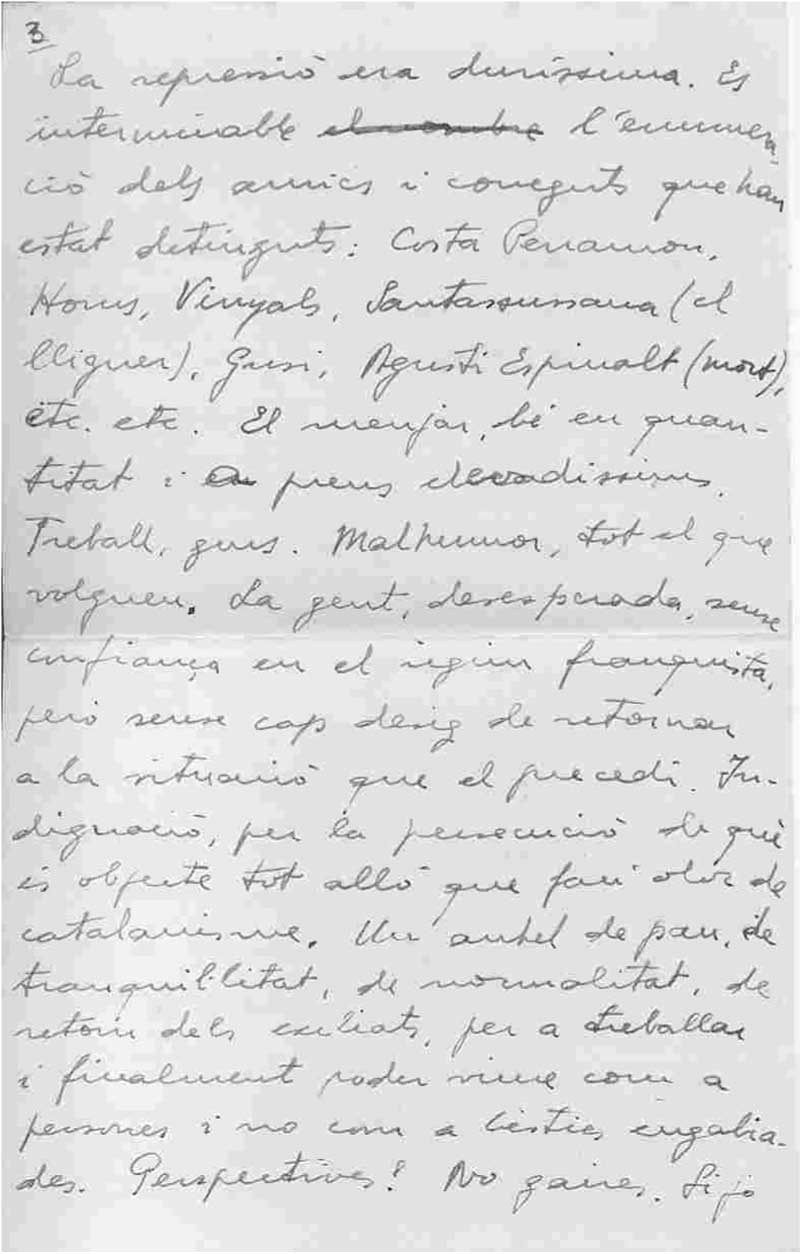 3
La repressió era duríssima. Es
interminable el nombre l'enumera-
ció dels amics i coneguts que han
estat detinguts: Costa Perramon,
Homs, Vinyals, Santassussana (el
lliguer), Gusi, Agustí Espinalt (mort),
etc. etc. El menjar, bé en quan-
titat i preus elevadíssims.
Treball, gens. Malhumor, tot el que
volgueu. La gent, desesperada, sense
confiança en el règim franquista,
però sense cap desig de retornar
a la situació que el precedí. In-
dignació, per la persecució de què
és objecte tot allò que faci olor de
catalanisme. Un anhel de pau, de
tranquil·litat, de normalitat, de
retorn dels exiliats, per a treballar
i finalment poder viure com a
persones i no com a bèsties engabia-
des. Perspectives? No gaires. Si jo